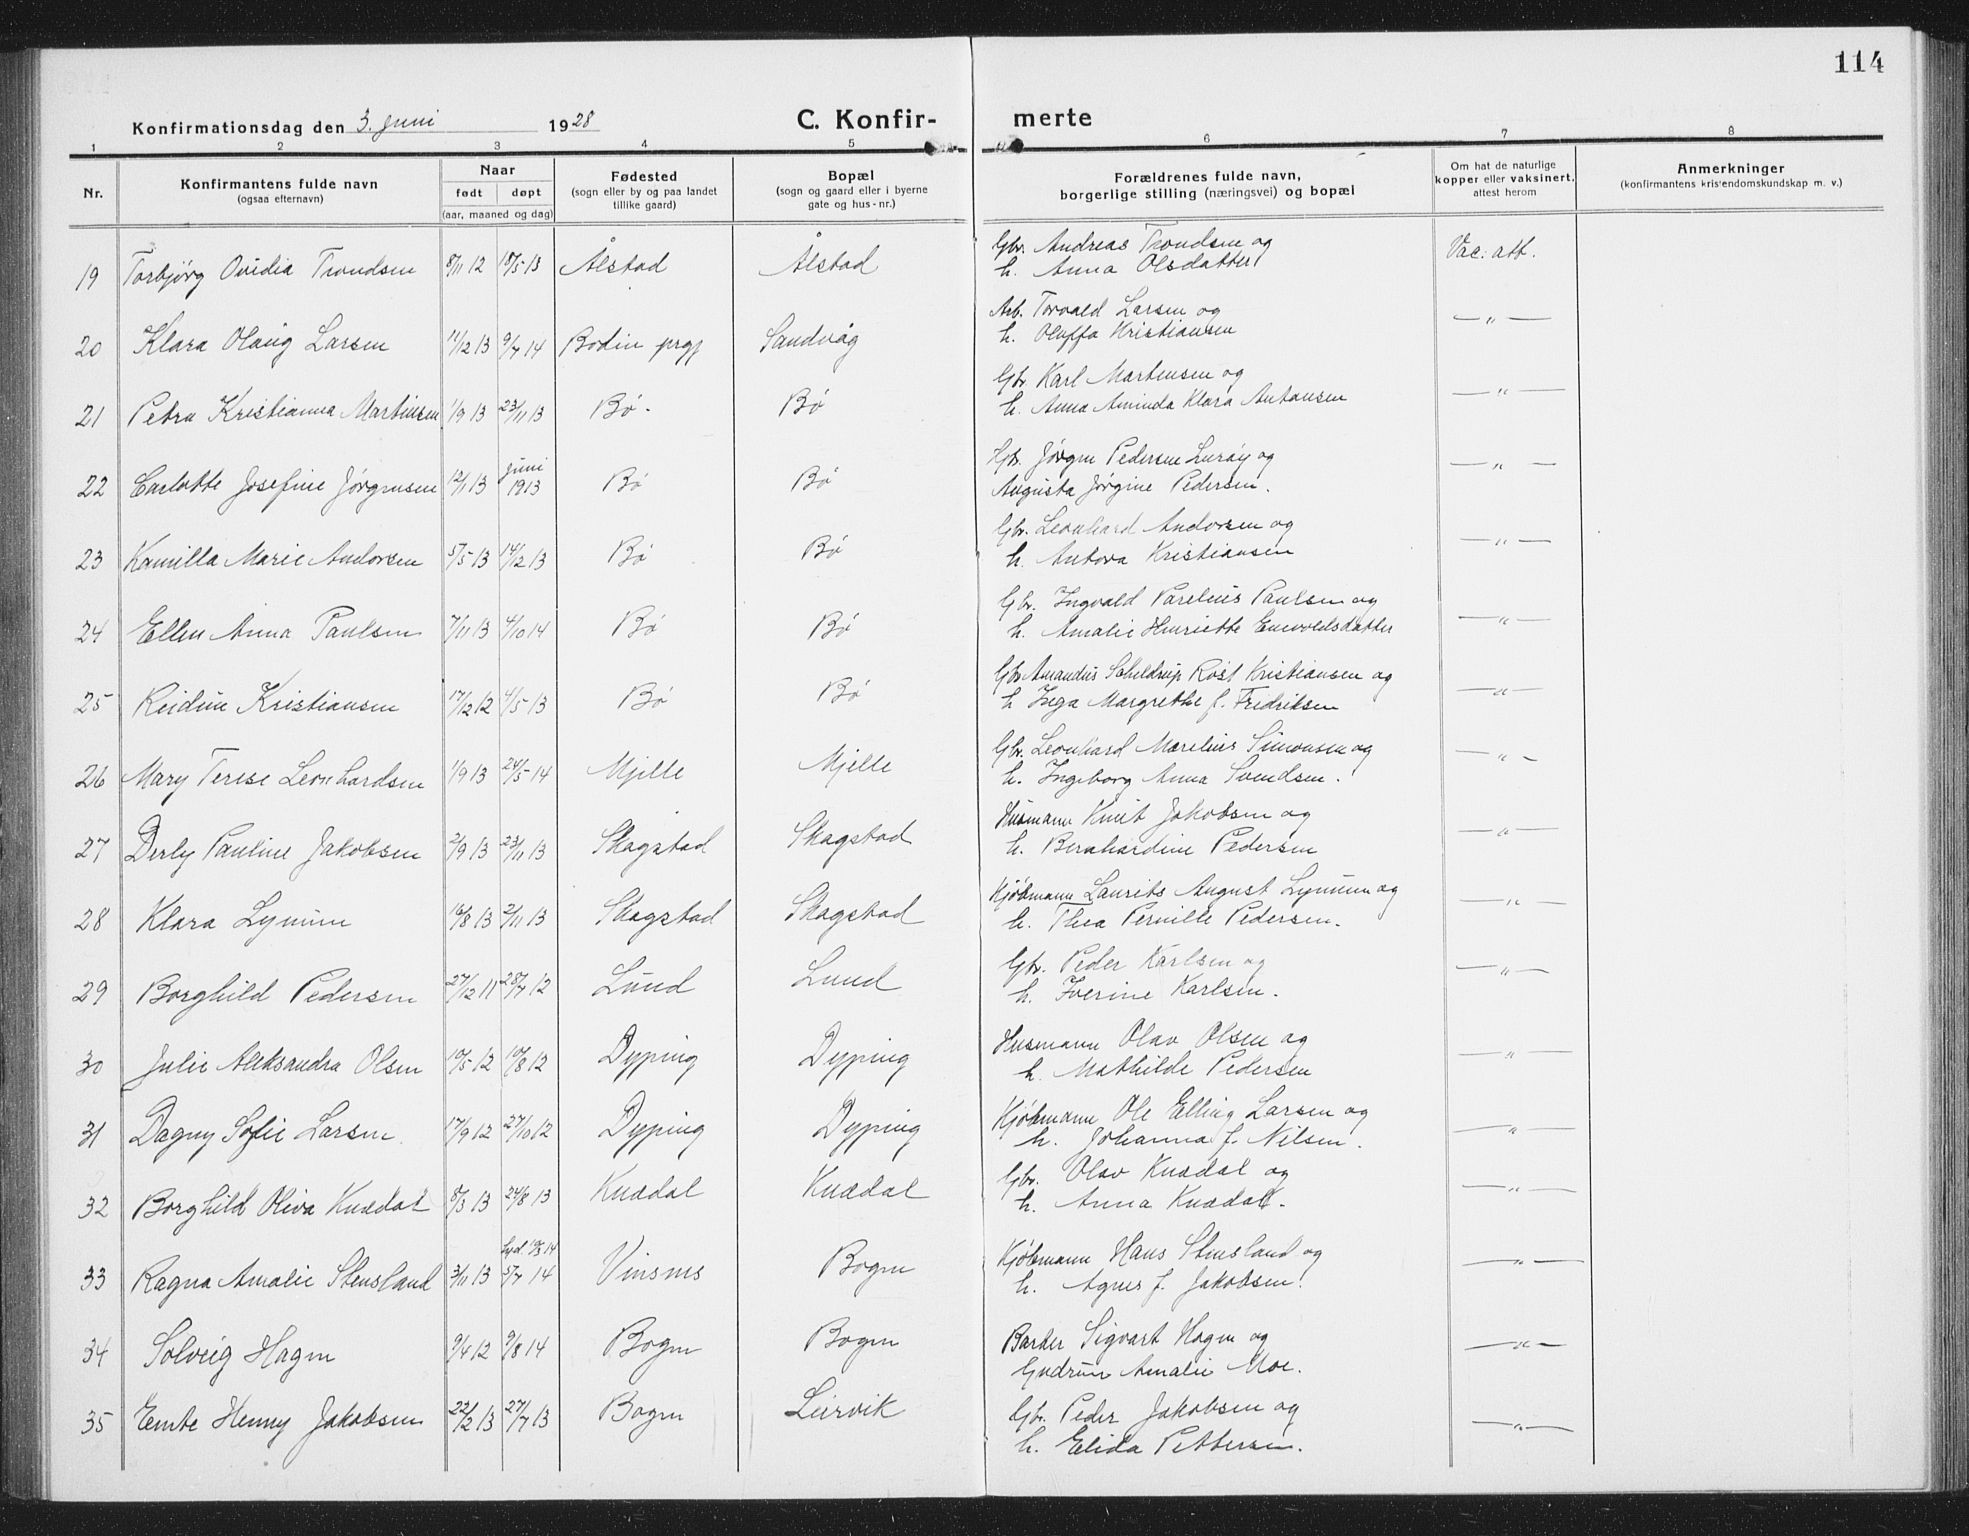 114
Konfirmationsdag den 3. juni 1928 C. Konfir- merte
1 2 3 4 5 6 7 8
Nr. Konfirmantens fulde navn (ogsaa efternavn) Naar født døpt (aar, maaned og dag) Fødested (sogn eller by og paa landet tillike gaard) Bopæl (sogn og gaard eller i byerne gate og hus-nr.) Forældrenes fulde navn, borgerlige stilling (næringsvei) og bopæl Om hat de naturlige kopper eller vaksinert, attest herom Anmerkninger (konfirmantens kristendomskundskap m. v.)
19 Torbjørg Ovidia Trondsen 8/11 12 18/5 13 Ålstad Ålstad Gbr. Andreas Trondsen og Vac: att.
h. Anna Olsdatter
20 Klara Olaug Larsen 11/12 13 9/7 14 Bodin prgj Sandvåg Arb. Torvald Larsen og — " —
h. Oluffa Kristiansen
21 Petra Kristianna Martinsen 1/9 13 23/11 13 Bø. Bø Gbr Karl Martensen og — " —
h. Anna Aminda Klara Antonsen
22 Carlotte Josefine Jørgensen 12/11 13 juni 1913 Bø Bø Gbr. Jørgen Pedersen Lurøy og — " —
Augusta Jørgine Pedersen.
23 Kamilla Marie Andorsen 5/5 13 14/12 13 Bø Bø Gbr. Leonhard Andorsen og — " —
h. Antora Kristiansen
24 Ellen Anna Paulsen 7/11 13 4/10 14 Bø Bø Gbr. Ingvald Parelius Paulsen og — " —
h. Amalie Henriette Enevoldsdatter
25 Reidun Kristiansen 17/12 12 4/5 13 Bø Bø Gbr Amandus Scheldrup Røst Kristiansen og — " —
h Inga Margrethe f. Fredriksen
26 Mary Terese Leonhardsen 1/9 13 24/5 14 Mjelle Mjelle Gbr. Leonhard Marelius Simonsen og — " —
h. Ingeborg Anna Svendsen.
27 Derly Pauline Jakobsen 2/9 13 23/11 13 Skagstad Skagstad Husmann Knut Jakobsen og — " —
h. Bernhardine Pedersen
28 Klara Lynum 16/8 13 2/11 13 Skagstad Skagstad Kjøbmann Laurits August Lynum og — " —
h. Thea Pernille Pedersen.
29 Borghild Pedersen 27/12 11 28/7 12 Lund Lund Gbr. Peder Karlsen og — " —
h. Iverine Karlsen.
30 Julie Aleksandra Olsen 10/5 12 10/8 12 Dyping Dyping Husmann Olav Olsen og — " —
h. Mathilde Pedersen
31 Dagny Sofie Larsen 17/9 12 27/10 12 Dyping Dyping Kjøbmann Ole Elling Larsen og — " —
h. Johanna f. Nilsen.
32 Borghild Oliva Knædal 8/3 13 24/8 13 Knædal Knædal Gbr. Olav Knædal og — " —
h. Anna Knædal.
33 Ragna Amalie Stensland 3/11 13 5/7 14 Vinsnes Bogen Kjøbmann Hans Stensland og — " —
h. Agnes f. Jakobsen.
34 Solveig Hagen 9/4 12 9/8 14 Bogen Bogen Barber Sigvart Hagen og — " —
Gudrun Amalie Moe.
35 Emte Henny Jakobsen 22/2 13 27/7 13 Bogen Leirvik Gbr. Peder Jakobsen og — " —
h. Elida Pettersen.